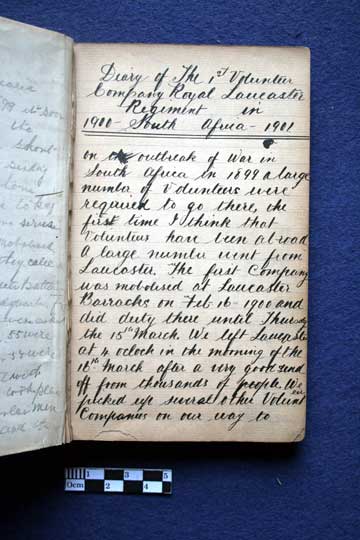 Diary of The 1st Volunteer
Company Royal Lancaster
Regiment in
1900 - South Africa - 1901
on outbreak of War in
South Africa in 1899 a large
numba of Volunteers were
required to go there, the
first time I think that
Volunteers have been abroad
A large number went from
Lancaster. The first Company
was mobolised at Lancaster
Barracks on Feb 16 - 1900 and
did duty there until Thursday
the 15th March. We left Lancaster
at 4 oclock in the morning of the
16th March after a very good send
off from thousands of people. We
picked up several other Volunteer
Companies on our way to
0cm 1 2 3 4 5